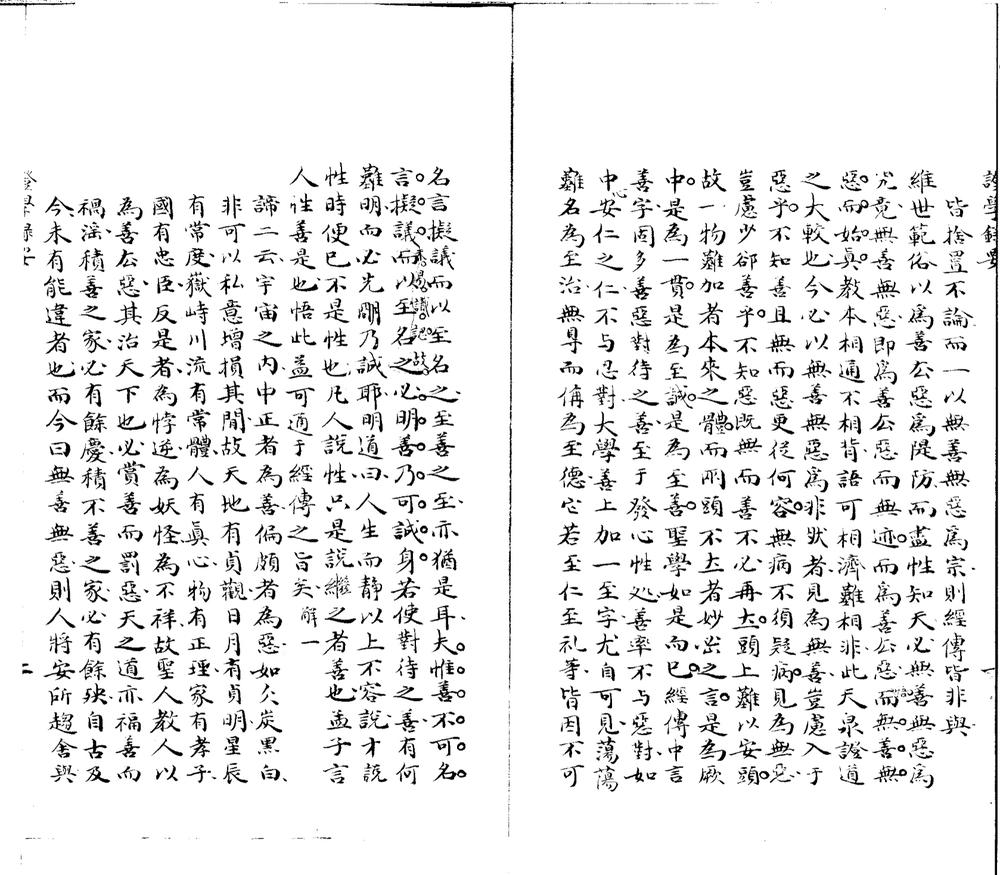 證學錄要
皆捨置不論而一以無善無惡爲宗則經傳皆非與
維世範俗以爲善去惡爲隄防而盡性知天必無善無惡爲
究竟無善無惡即爲善去惡而無迹而爲善去惡而無善無
惡而始眞教本相通不相背語可相濟難相非此天泉證道
之大較也今必以無善無惡爲非然者見為無善豈慮入于
惡乎不知善且無而惡更從何容無病不須疑病見為無惡
豈慮少卻善乎不知惡既無而善不必再立頭上難以安頭
故一物難加者本來之體而兩頭不立者妙出之言是為厥
中是為一貫是為至誠是為至善聖學如是而已經傳中言
善字固多善惡對待之善至于發心性処善率不与惡對如
中心安仁之仁不与忍對大學善上加一至字尤自可見蕩蕩
難名為至治無㝵而偁為至德它若至仁至礼等皆因不可
名言擬議而以至名之至善之至亦猶是耳夫惟善不可名
言擬議而以至名之必明善乃可誠身若使對待之善有何
難明而必先明乃誠耶明道曰人生而静以上不容說才說
性時便已不是性也凡人說性只是說繼之者善也孟子言
人性善是也悟此益可通于經傳之旨矣 解一
諦二云宇宙之内中正者為善偏頗者為惡如久炭黒白
非可以私意增損其間故天地有貞觀日月有貞明星辰
有常度嶽峙川流有常體人有眞心物有正理家有孝子
國有忠臣反是者為悖逆為妖怪為不祥故聖人教人以
為善去惡其治天下也必賞善而罰惡天之道亦福善而
禍淫積善之家必有餘慶積不善之家必有餘殃自古及
今未有能違者也而今曰無善無惡則人將安所趨舍與